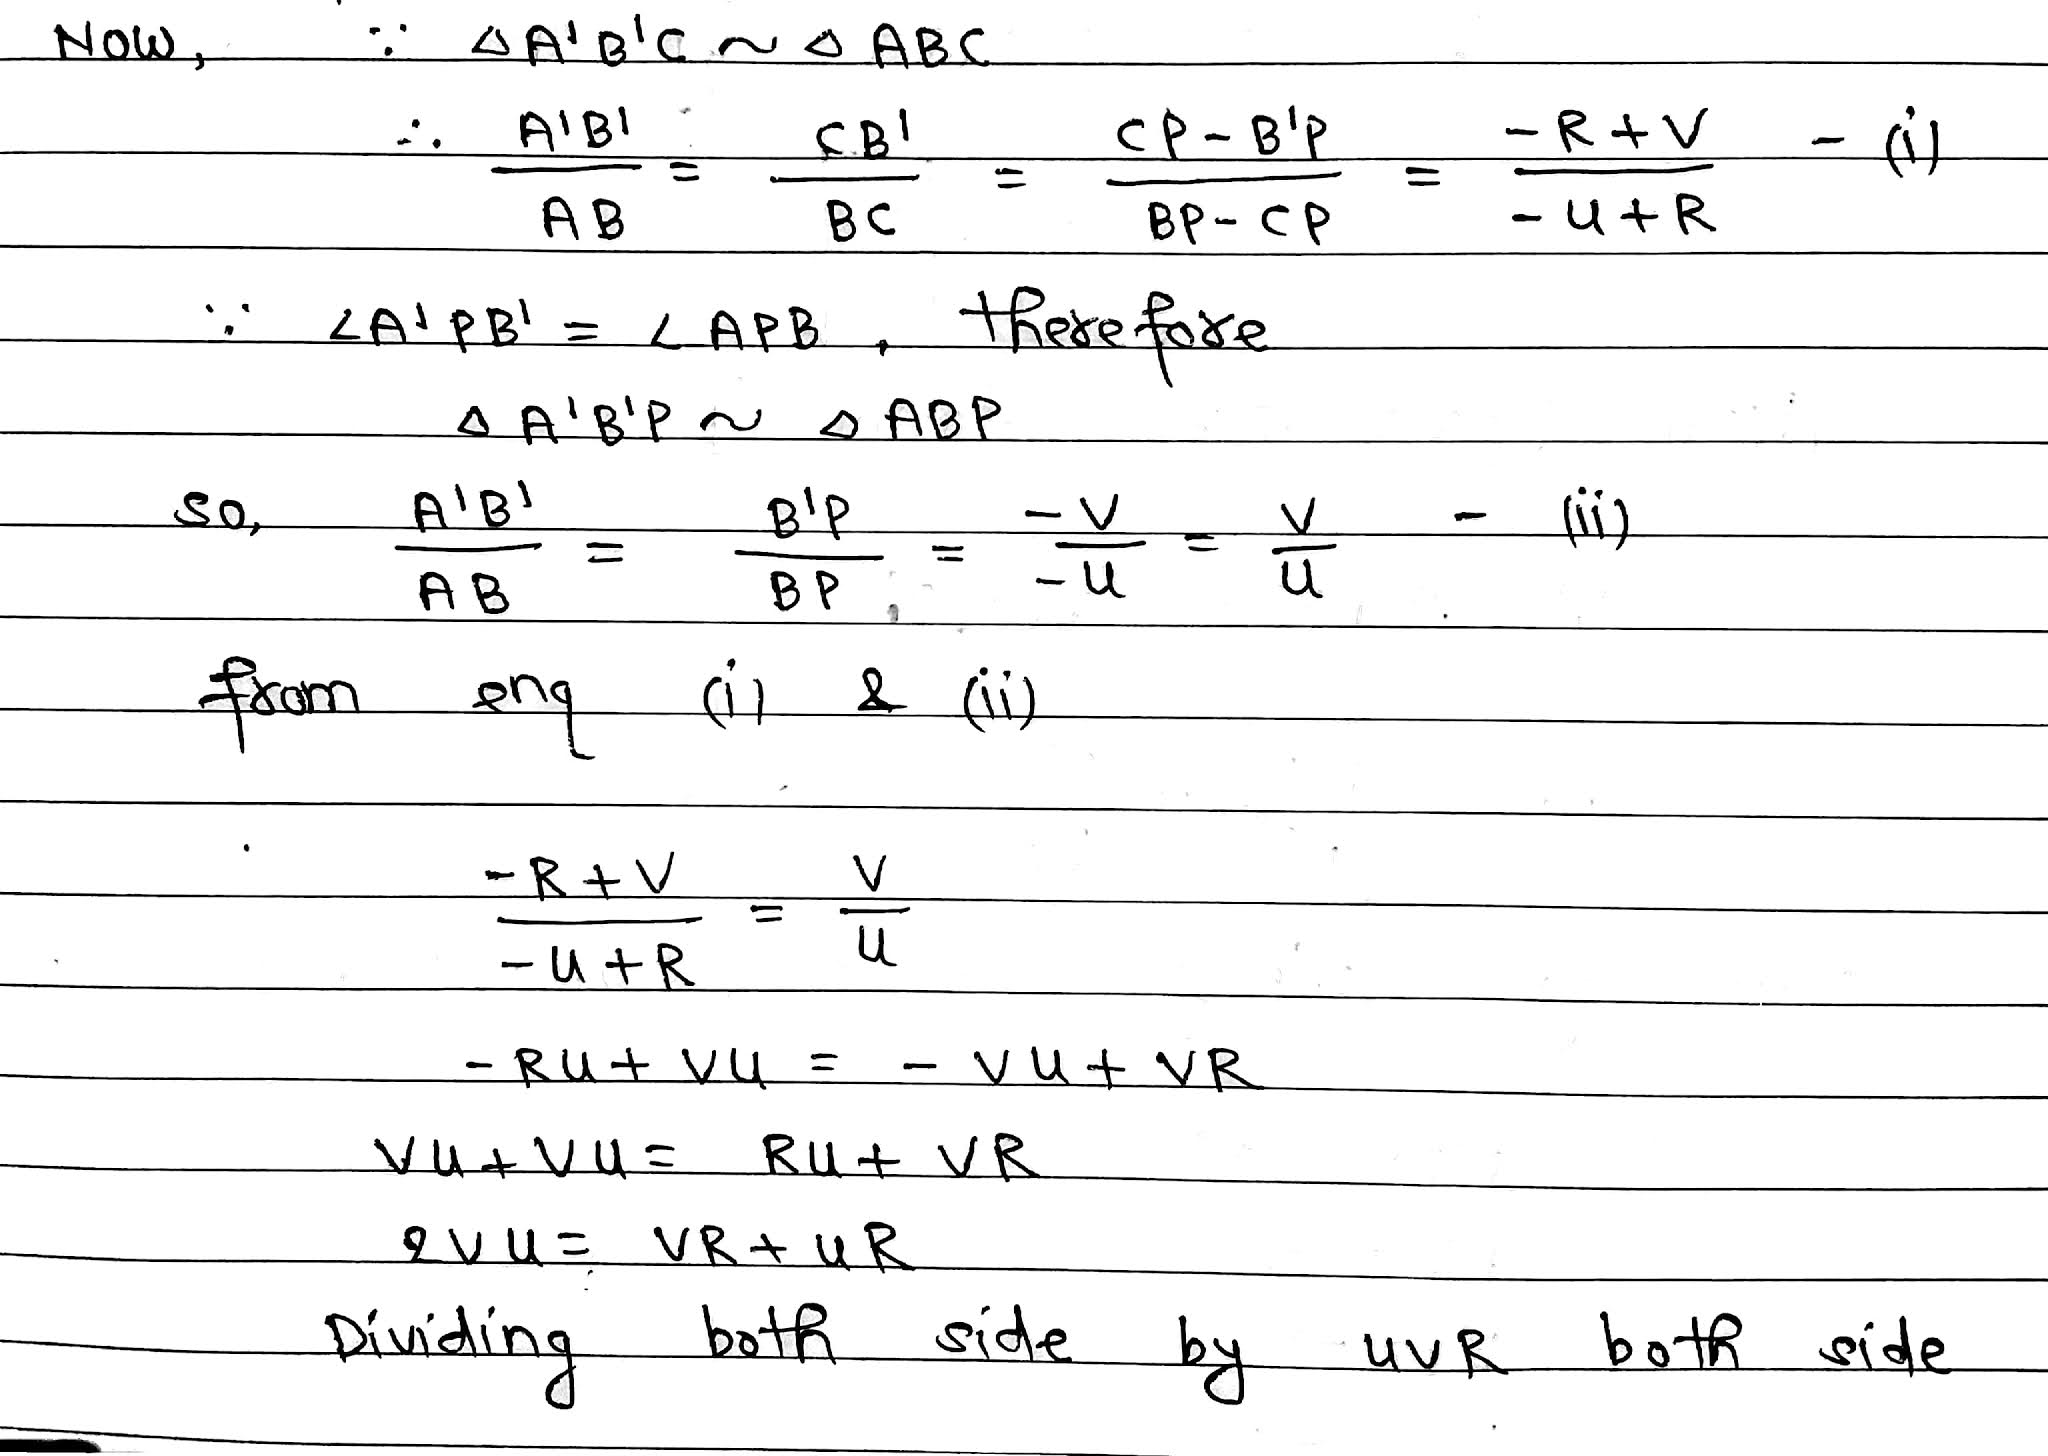 Now, ∵ △A'B'C ~ △ABC
∴ A'B'/AB = CB'/BC = CP-B'P/BP-CP = -R+V/-u+R - (i)
∵ ∠A'PB' = ∠APB, therefore
△A'B'P ~ △ABP
so, A'B'/AB = B'P/BP = -V/-u = V/u - (ii)
from enq (i) & (ii)
-R+V/-u+R = V/u
-Ru+Vu = -Vu+VR
Vu+Vu = Ru+VR
2Vu = VR+uR
Dividing both side by uvR both side